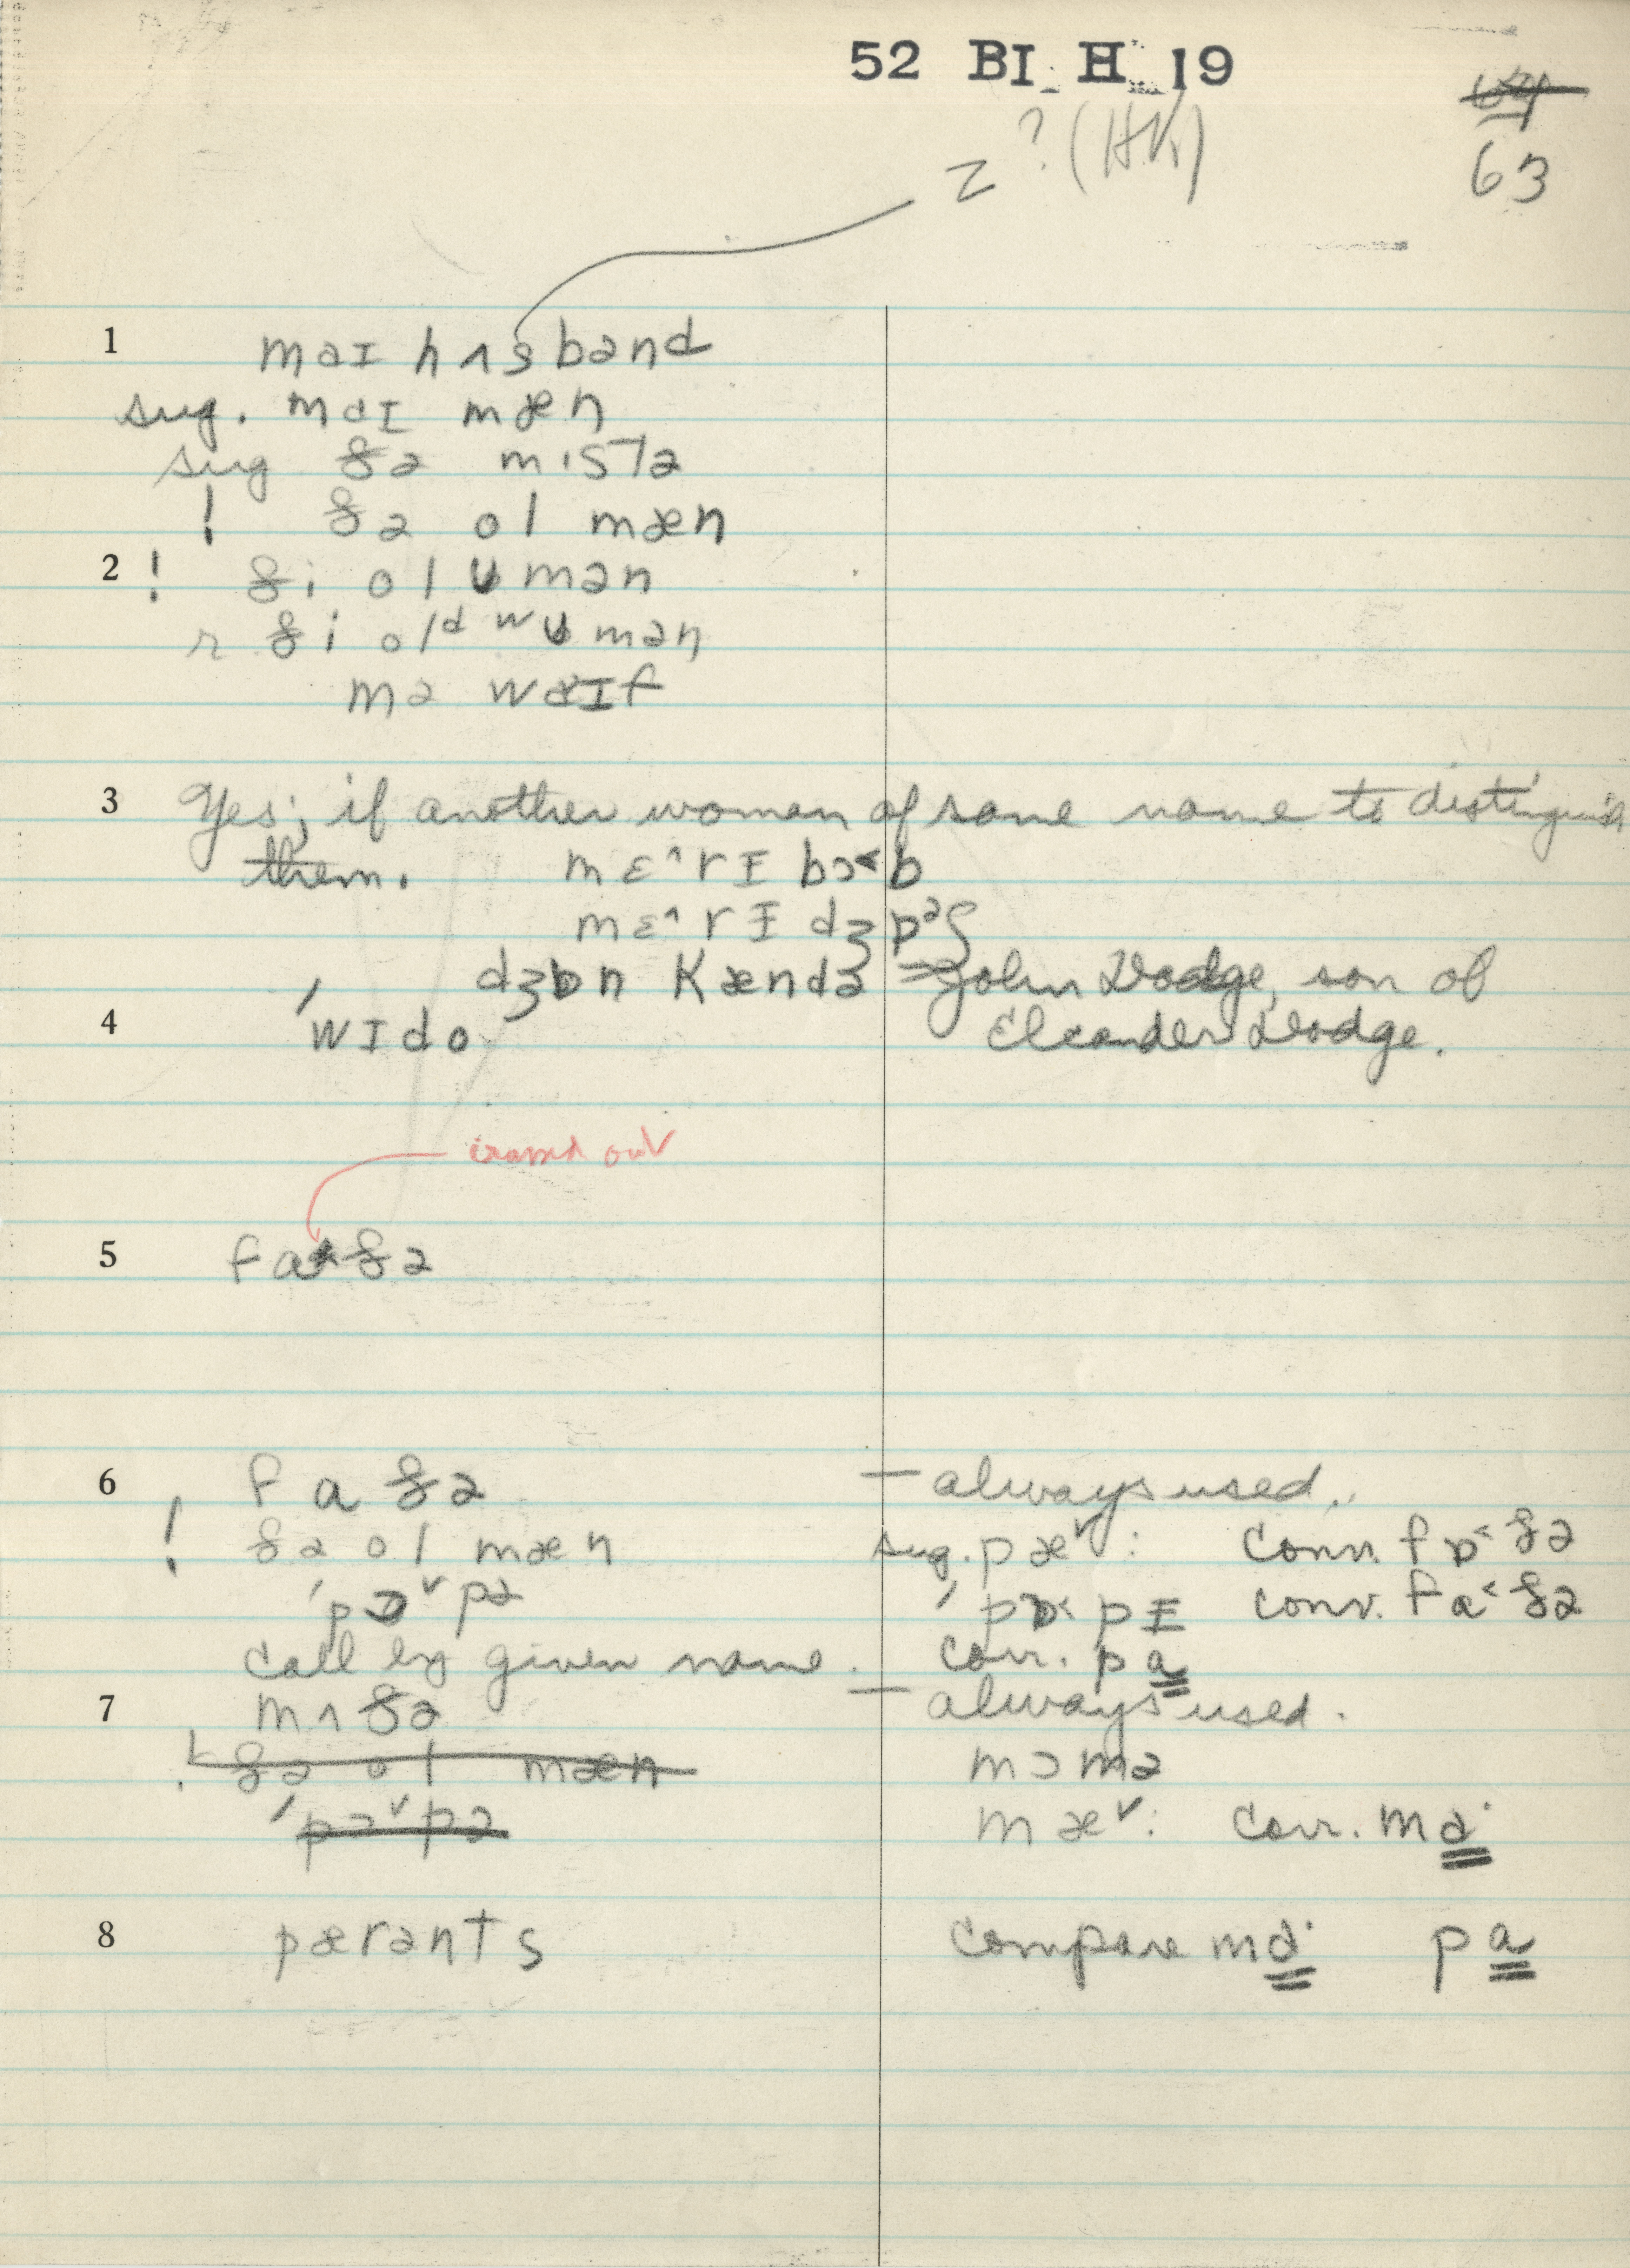 52 BI H 19
64
z ? (HK)
63
1 maɪ hʌsbənd
sug. maɪ mæn
sug ðə mɪstə
! ðə ol mæn
2 ! ði ol ʊmən
r ði olᵈ wʊmən
mə waɪf
3 Yes; if another woman of same name to distinguish
them. mɛ^rɪ bɔ˂b
mɛ^rɪ dʒ
dʒɒn kændə = John Dodge, son of
4 ' wɪdo Eleander Dodge.
erased out
5 fa ðə
6 faðə — always used.
! ðə ol mæn sug. pæ˅: conv. fɒ˂ðə
'pɔ˅pə 'pɒ˂pɪ conv. fa˂ðə
call by given name. corr. pa
7 mʌðə — always used.
! ðə ol mæn mɔmə
'pɔ˅pə mæ˅: corr. ma·
8 pærənts compare ma· pa